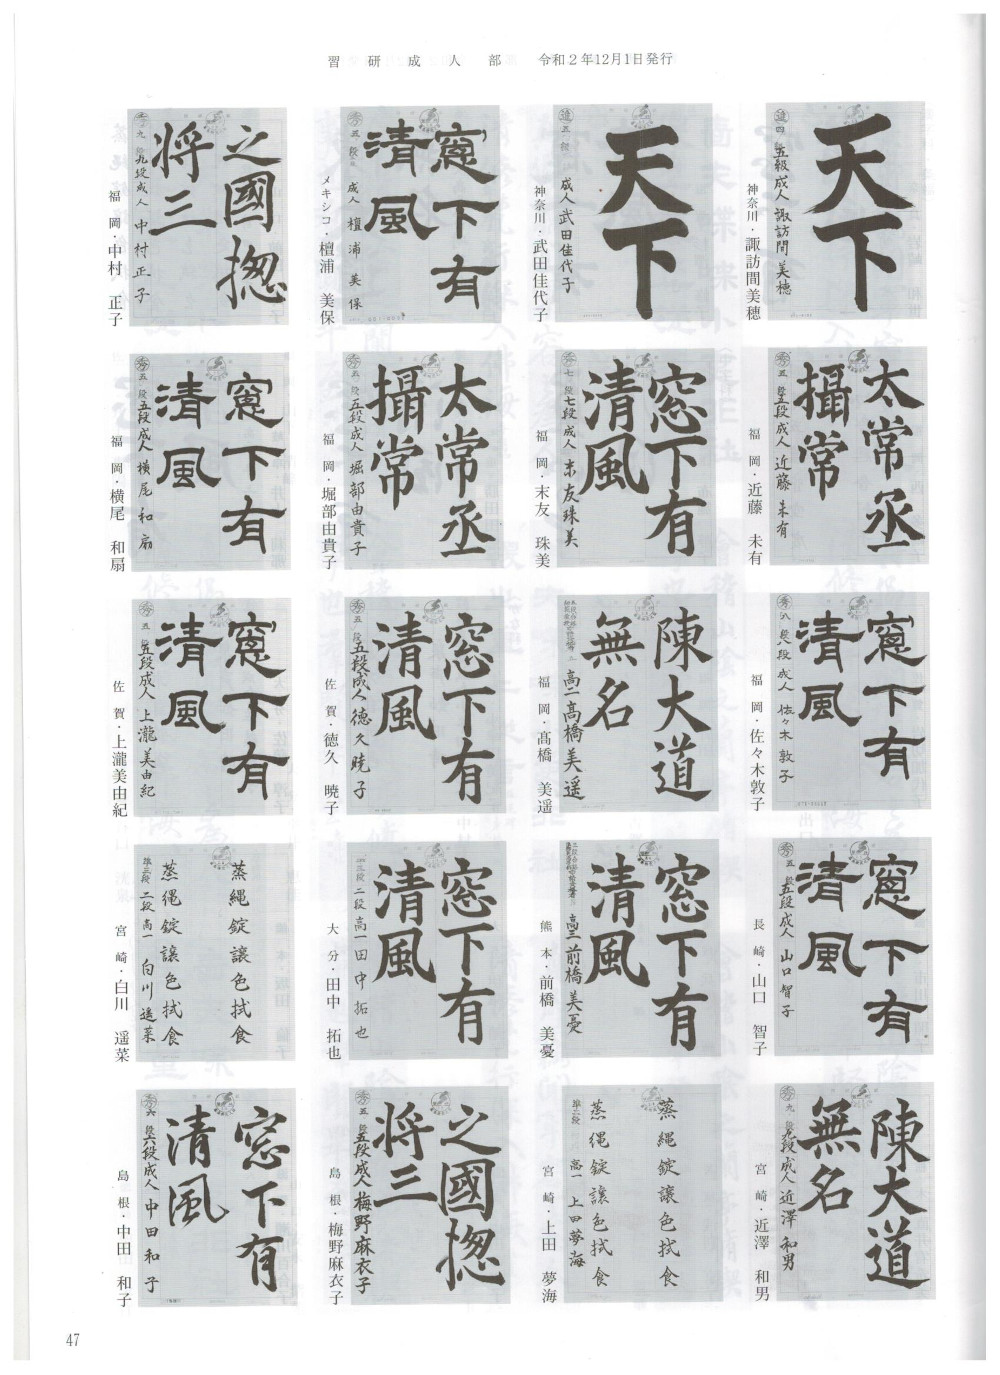 習研成人部 令和2年12月1日発行
天下
五級成人 諏訪間美穂
神奈川・諏訪間美穂
天下
成人 武田佳代子
神奈川・武田佳代子
窓下有
清風
五段
成人 檀浦美保
メキシコ・檀浦 美保
之國惣
将三
九段
九段成人 中村正子
福岡・中村 正子
太常丞
攝常
五段
五段成人 近藤未有
福岡・近藤 未有
窓下有
清風
七段
七段成人 末友珠美
福岡・末友 珠美
太常丞
攝常
五段
五段成人 堀部由貴子
福岡・堀部由貴子
窓下有
清風
五段
五段成人 横尾和扇
福岡・横尾 和扇
窓下有
清風
八段
八段成人 佐々木敦子
福岡・佐々木敦子
陳大道
無名
高二 高橋美遥
福岡・髙橋 美遥
窓下有
清風
五段
五段成人 徳久暁子
佐賀・徳久 暁子
窓下有
清風
五段
五段成人 上瀧美由紀
佐賀・上瀧美由紀
窓下有
清風
五段
五段成人 山口智子
長崎・山口 智子
窓下有
清風
高三 前橋美憂
熊本・前橋 美憂
窓下有
清風
二段 高一 田中拓也
大分・田中 拓也
蒸縄錠譲色拭食
蒸縄錠譲色拭食
準三段
二段 高一 白川遥菜
宮崎・白川 遥菜
陳大道
無名
九段
九段成人 近澤和男
宮崎・近澤 和男
蒸縄錠譲色拭食
蒸縄錠譲色拭食
準二段
高一 上田夢海
宮崎・上田 夢海
之國惣
将三
五段
五段成人 梅野麻衣子
島根・梅野麻衣子
窓下有
清風
六段
六段成人 中田和子
島根・中田 和子
47